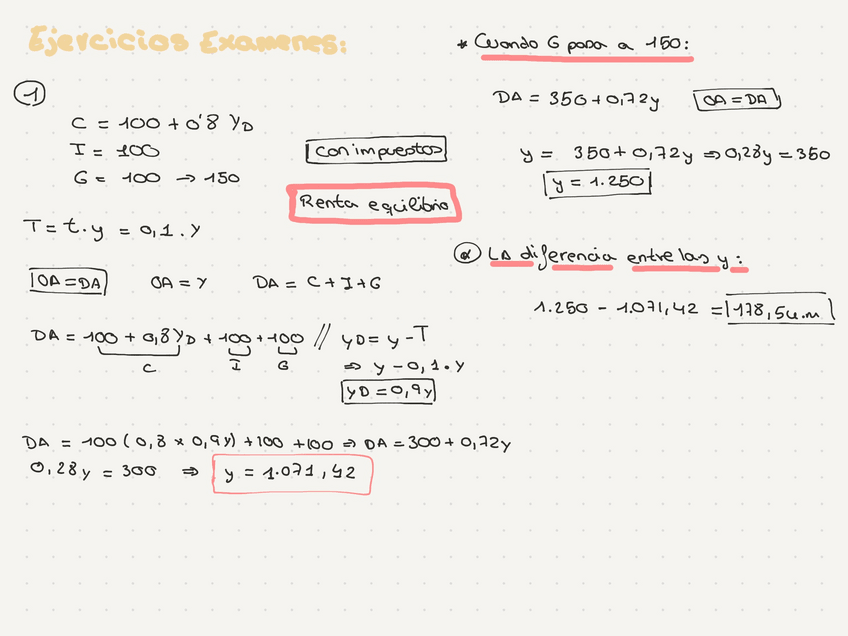 Ejercicios Examenes:
1
C = 100 + 0'8 YD
I = 100
G = 100 → 150
con impuestos
Renta equilibrio
T = t · y = 0,1 · Y
OA = DA OA = Y DA = C + I + G
DA = 100 + 0,8 YD + 100 + 100 // yD = y - T
C I G
⇒ y - 0,1 · Y
yD = 0,9y
DA = 100 (0,8 x 0,9y) + 100 + 100 ⇒ DA = 300 + 0,72y
0,28y = 300 ⇒ y = 1.071,42
* Cuando G pasa a 150:
DA = 350 + 0,72y OA = DA
y = 350 + 0,72y ⇒ 0,28y = 350
y = 1.250
a LA diferencia entre las y:
1.250 - 1.071,42 = 178,5 u.m